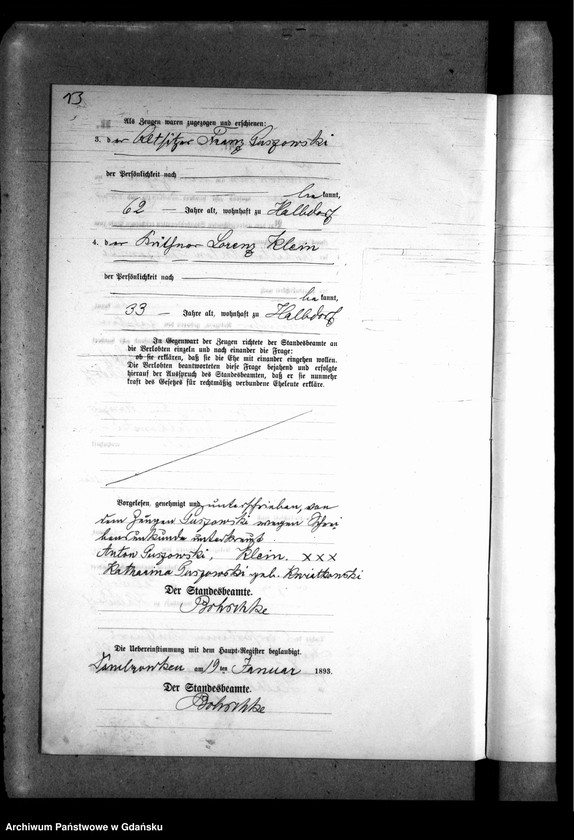 13
Als Zeugen waren zugezogen und erschienen:
3. der Altsitzer Franz Guszowski
der Persönlichkeit nach
be kannt,
62 Jahre alt, wohnhaft zu Halbdorf
4. der Lorenz Klein
der Persönlichkeit nach
be kannt,
33 Jahre alt, wohnhaft zu Halbdorf
In Gegenwart der Zeugen richtete der Standesbeamte an
die Verlobten einzeln und nach einander die Frage:
ob sie erklären, daß sie die Ehe mit einander eingehen wollen.
Die Verlobten beantworteten diese Frage bejahend und erfolgte
hierauf der Ausspruch des Standesbeamten, daß er sie nunmehr
kraft des Gesetzes für rechtmäßig verbundene Eheleute erkläre.
Vorgelesen, genehmigt und unterschrieben, von
dem Zeugen Guszowski wegen Schrei
bensunkunde unterkreuzt.
Anton Guszowski, Klein. XXX
Katharina Guszowski geb. Kwiatkowski
Der Standesbeamte.
Bohschke
Die Uebereinstimmung mit dem Haupt-Register beglaubigt.
am 19 ten Januar 1893.
Der Standesbeamte.
Bohschke
Archiwum Państwowe w Gdańsku